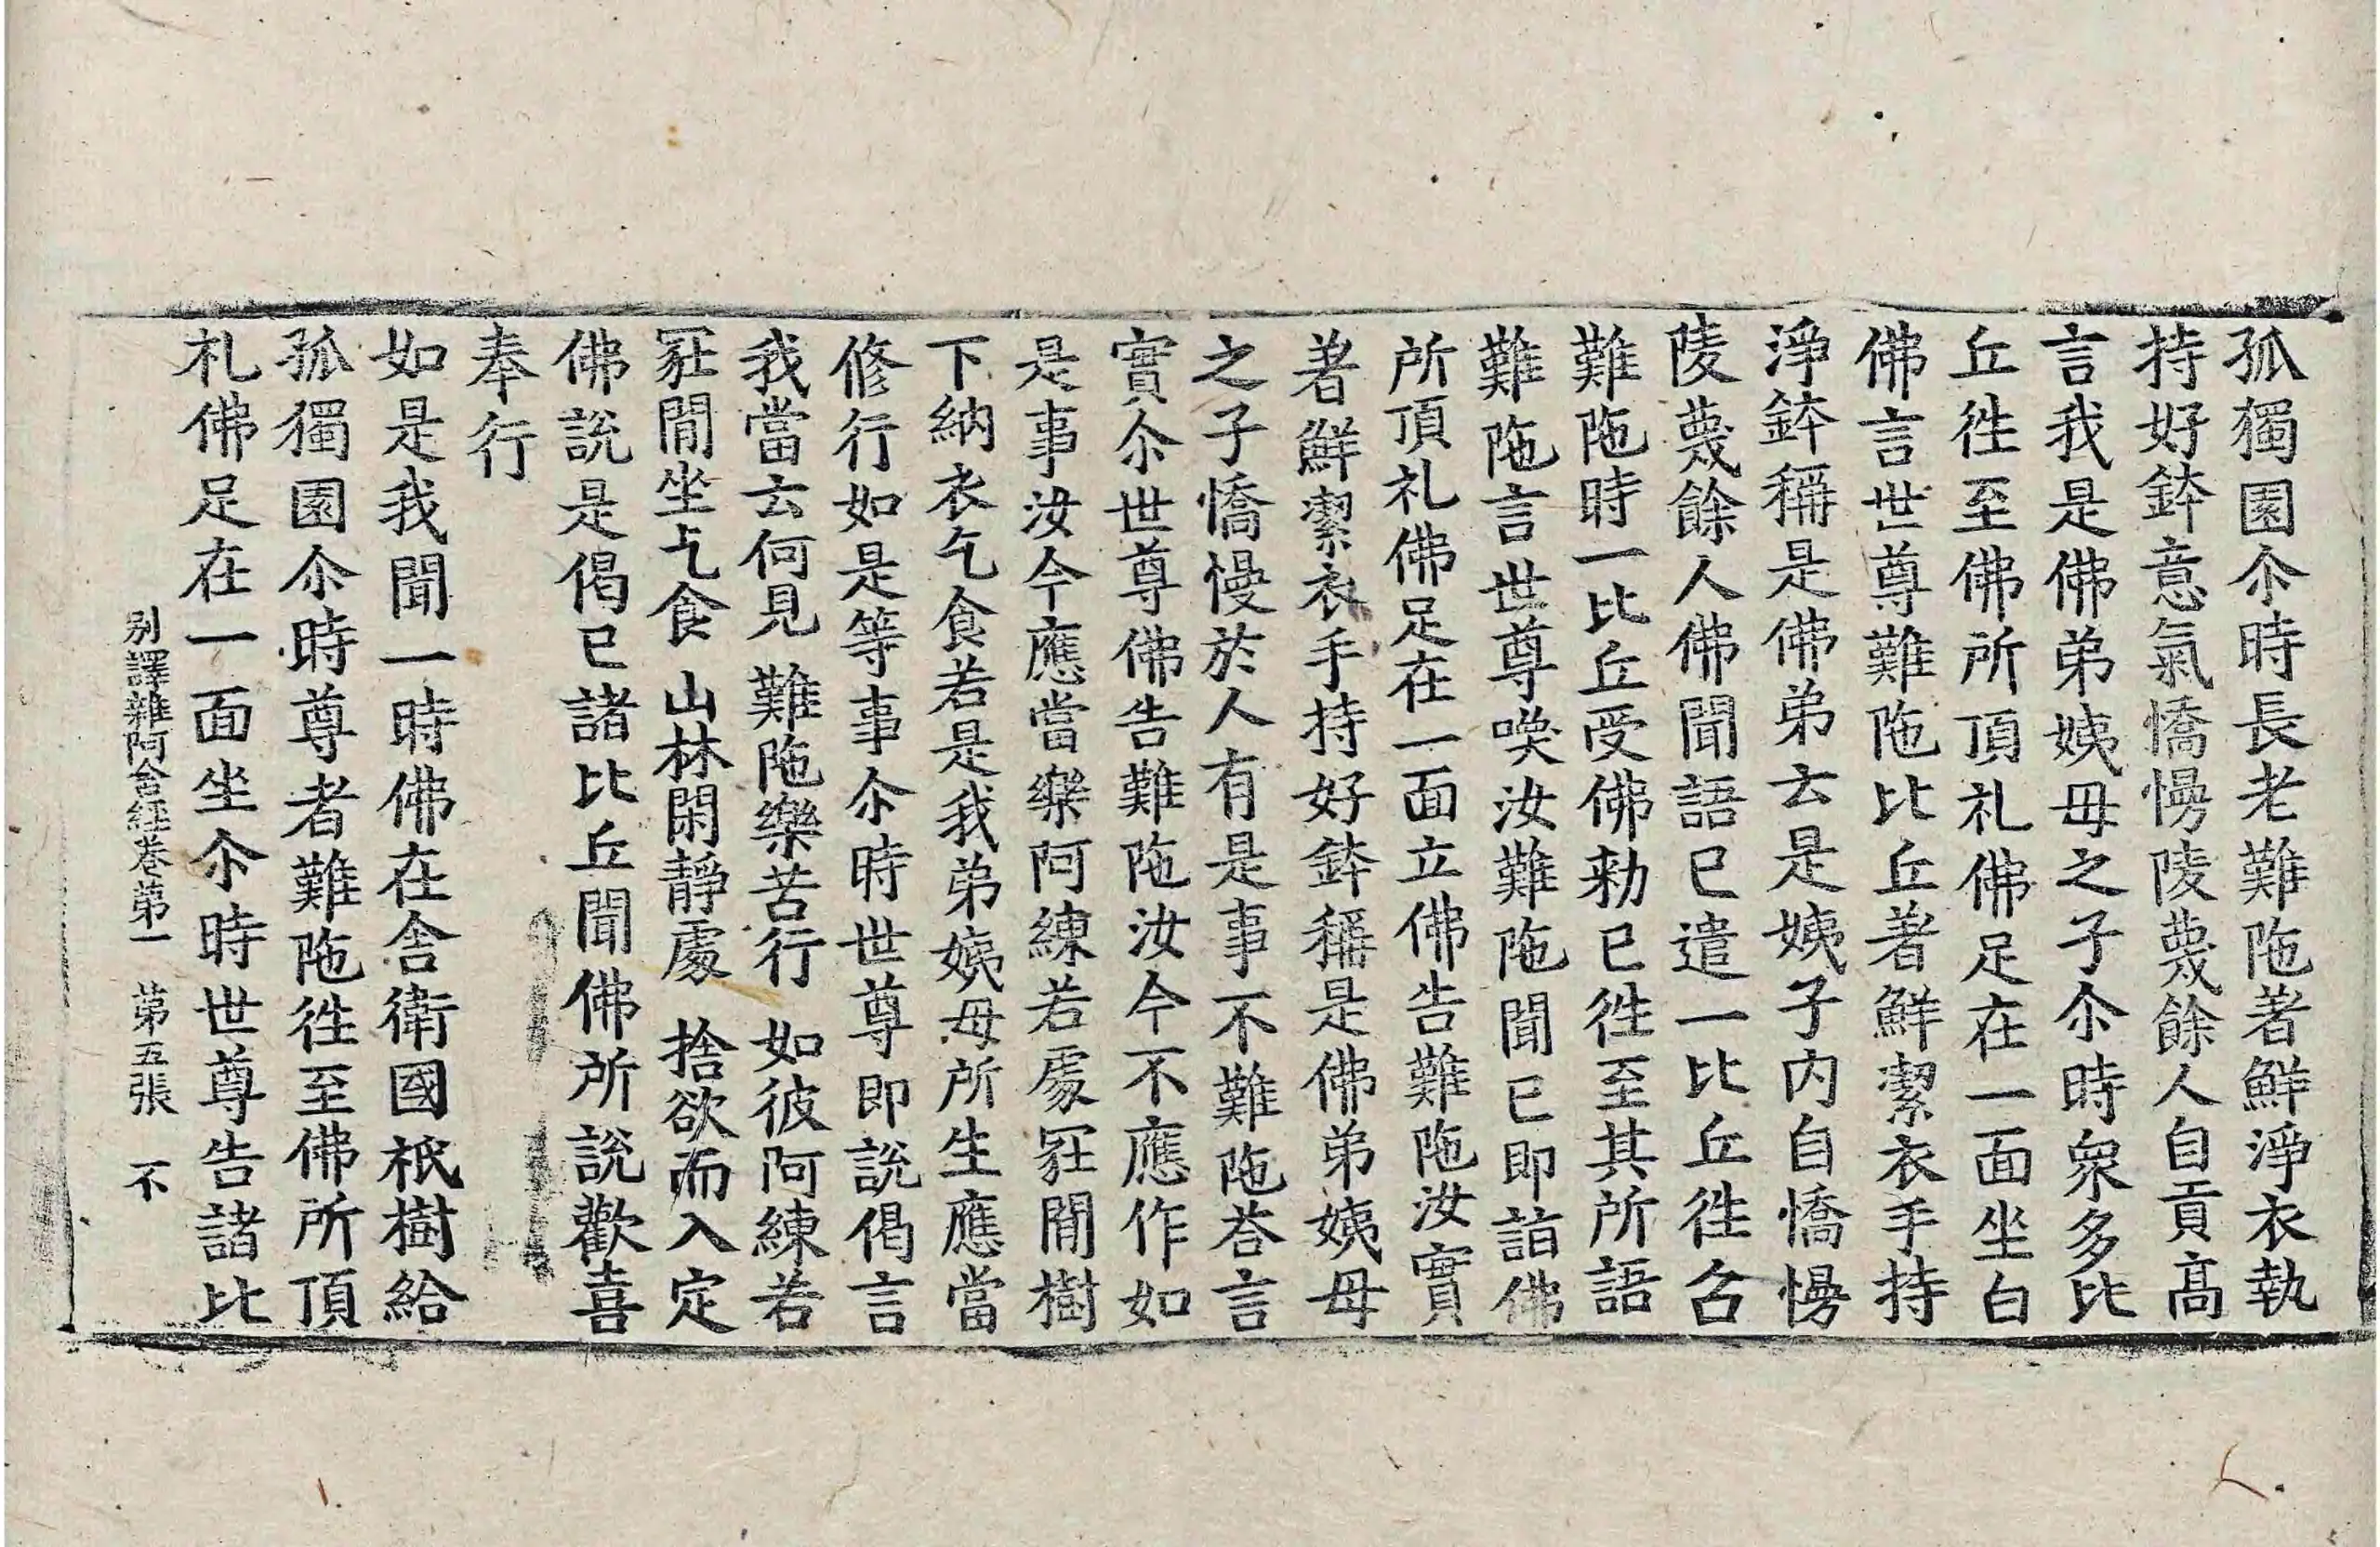 孤獨園尒時長老難陁著鮮淨衣執
持好鉢意氣憍慢陵蔑餘人自貢髙
言我是佛弟姨母之子尒時衆多比
丘徃至佛所頂礼佛足在一面坐白
佛言世尊難陁比丘著鮮潔衣手持
淨鉢稱是佛弟云是姨子内自憍慢
陵蔑餘人佛聞語已遣一比丘徃召
難陁時一比丘受佛勑已徃至其所語
難陁言世尊喚汝難陁聞已即詣佛
所頂礼佛足在一面立佛告難陁汝實
著鮮潔衣手持好鉢稱是佛弟姨母
之子憍慢於人有是事不難陁荅言
實尒世尊佛告難陁汝今不應作如
是事汝今應當樂阿練若處冡閒樹
下納衣乞食若是我弟姨母所生應當
修行如是等事尒時世尊即說偈言
我當云何見 難陁樂苦行 如彼阿練若
冡閒坐乞食 山林閑靜處 捨欲而入定
佛說是偈已諸比丘聞佛所說歡喜
奉行
如是我聞一時佛在舍衛國祇樹給
孤獨園尒時尊者難陁徃至佛所頂
礼佛足在一面坐尒時世尊告諸比
别譯雜阿含経巻第一 第五張 不